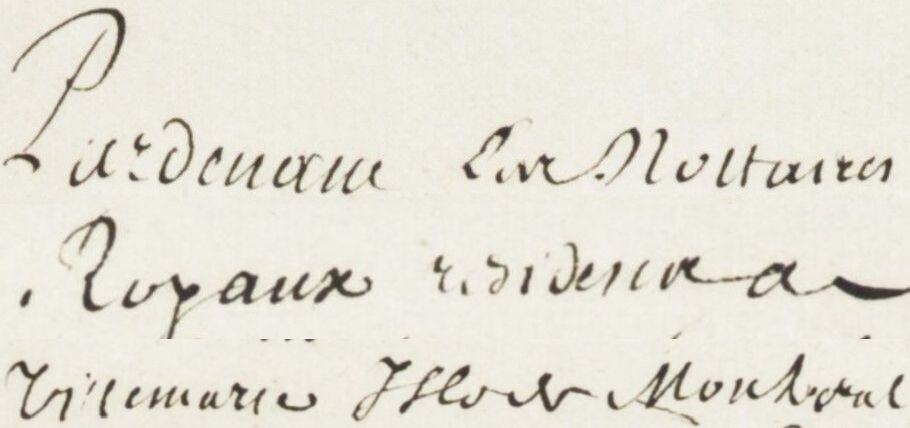 Pardevant Les Nottaires
Royaux residents a
Villemarie Isle de Montreal